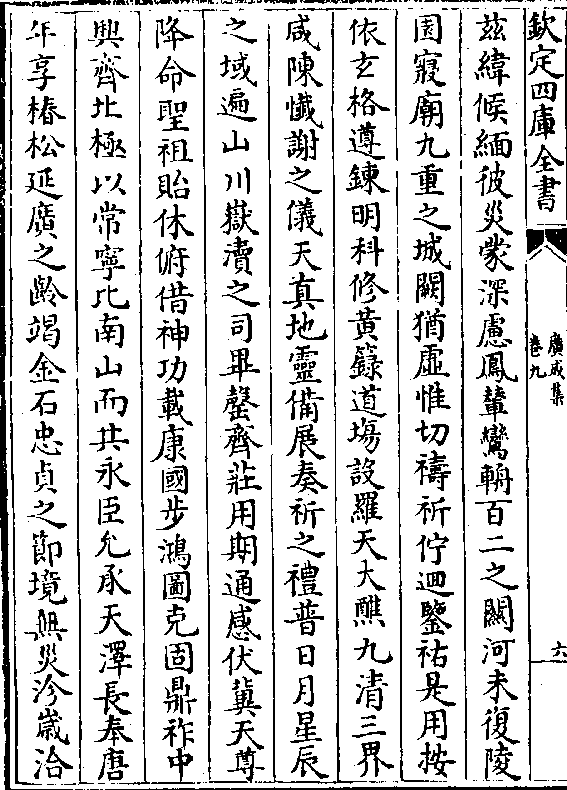 欽定四庫全書
廣成集
卷九
六
茲緯候緬彼災䝉深慮鳳輦鸞輧百二之關河未復陵
園寢廟九重之城闕猶虛惟切禱祈佇迴鑒祐是用按
依玄格遵鍊明科修黃籙道塲設羅天大醮九清三界
咸陳懺謝之儀天真地靈備展奏祈之禮普日月星辰
之域遍山川嶽瀆之司畢罄齊莊用期通感伏冀天尊
降命聖祖貽休俯借神功載康國步鴻圖克固鼎祚中
興齊北極以常寧比南山而共永臣允承天澤長奉唐
年享椿松延廣之齡竭金石忠貞之節境無災沴歲洽